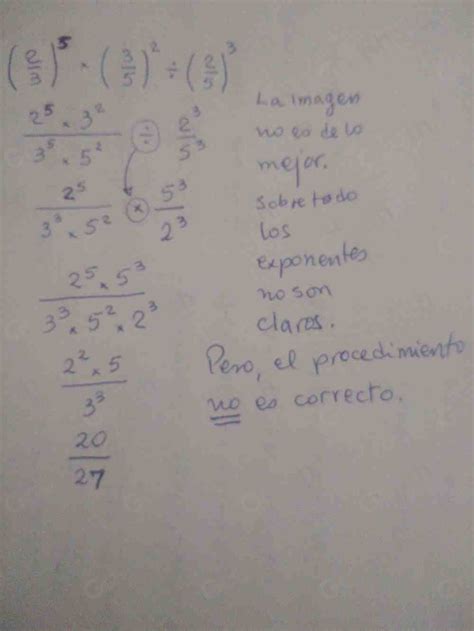 (2/3)^5 × (3/5)^2 ÷ (2/5)^3
2^5 × 3^2 / 3^5 × 5^2 ÷ 2^3 / 5^3
2^5 / 3^3 × 5^2 × 5^3 / 2^3
2^5 × 5^3 / 3^3 × 5^2 × 2^3
2^2 × 5 / 3^3
20 / 27
La imagen
no es de lo
mejor.
Sobretodo
los
exponentes
no son
claros.
Pero, el procedimiento
no es correcto.